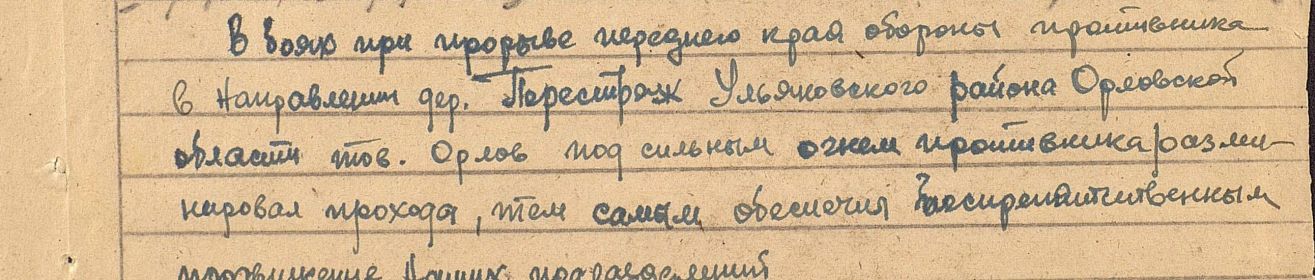 В боях при прорыве переднего края обороны противника
в направлении дер. Перестряж Ульяновского района Орловской
области тов. Орлов под сильным огнем противника разми-
нировал прохода, тем самым обеспечил беспрепятственным
продвижение наших подразделений